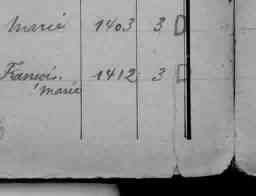 Marie 1403 3
François. 1412 3
Marie